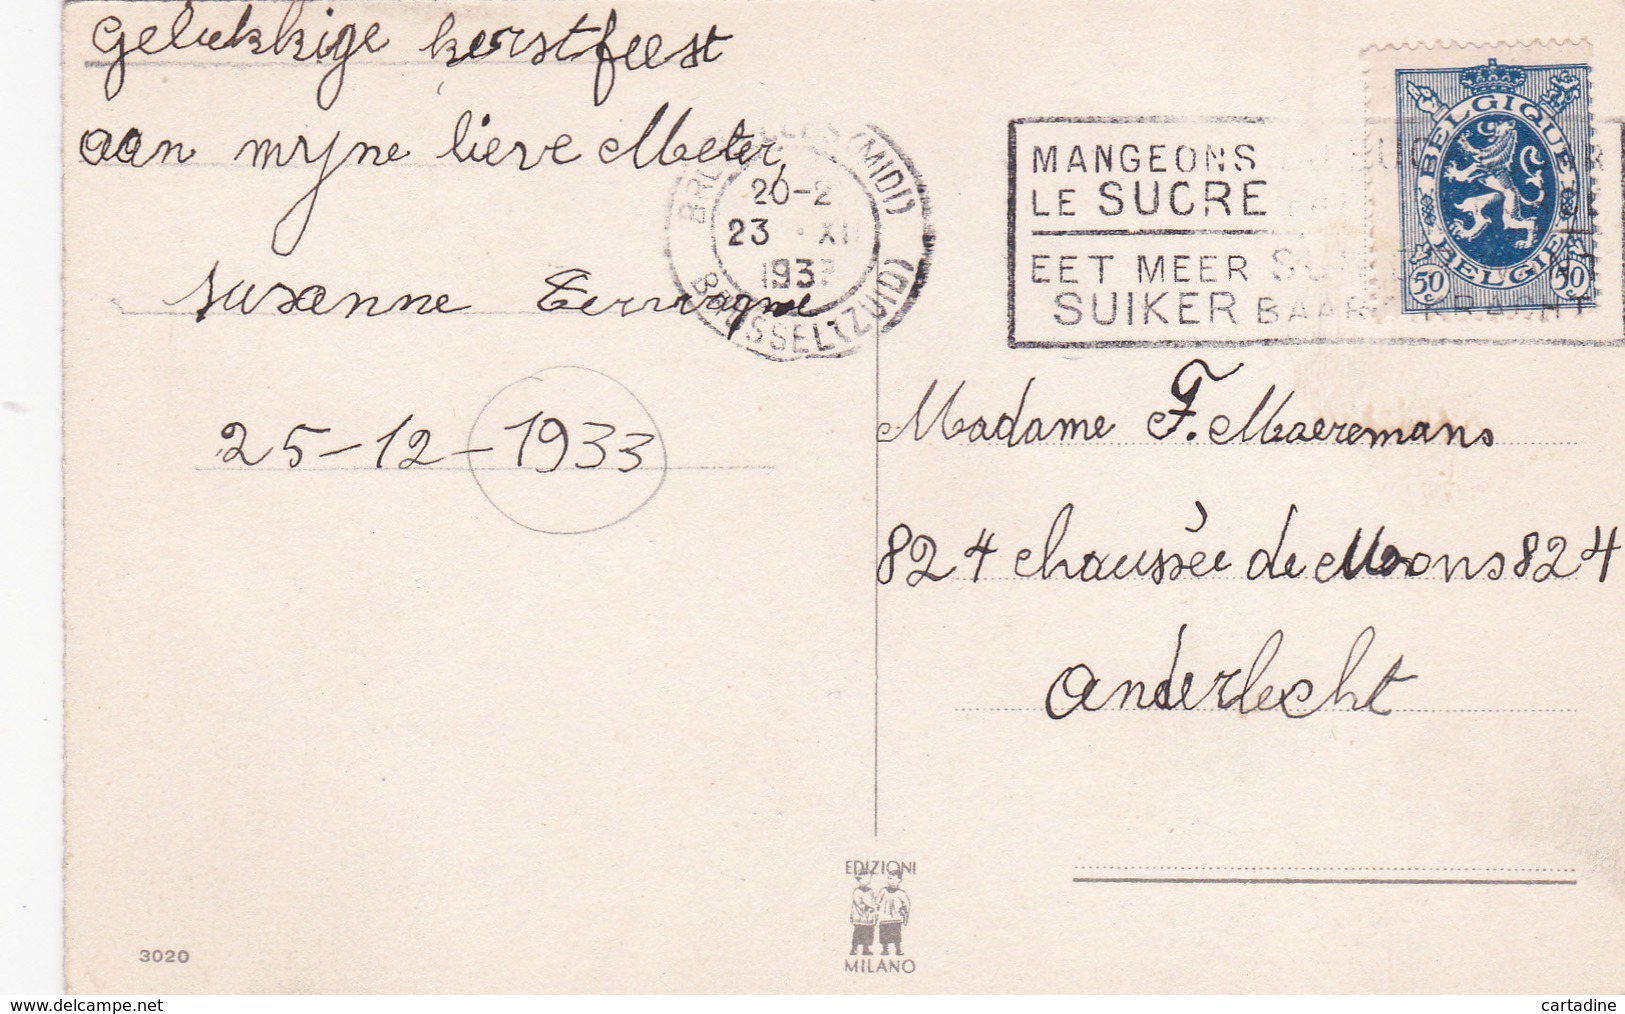 Gelukkige kerstfeest
aan myne lieve Meter,
Susanne
25-12-1933
BRUXELLES (MIDI)
20-2
23 XII
193
BRUSSEL (ZUID)
MANGEONS
LE SUCRE
EET MEER
SUIKER
BELGIQUE
BELGIE
50c 50c
Madame F. Maeremans
824 chaussée de Mons 824
Anderlecht
EDIZIONI
MILANO
3020
www.delcampe.net
cartadine